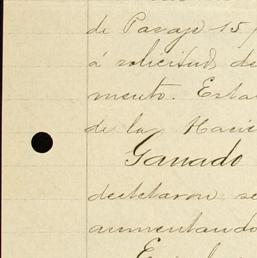 de Pasaje 15
á solicitud de
miento. Esta
de la Haci
Ganado
decretaron se
aumentando